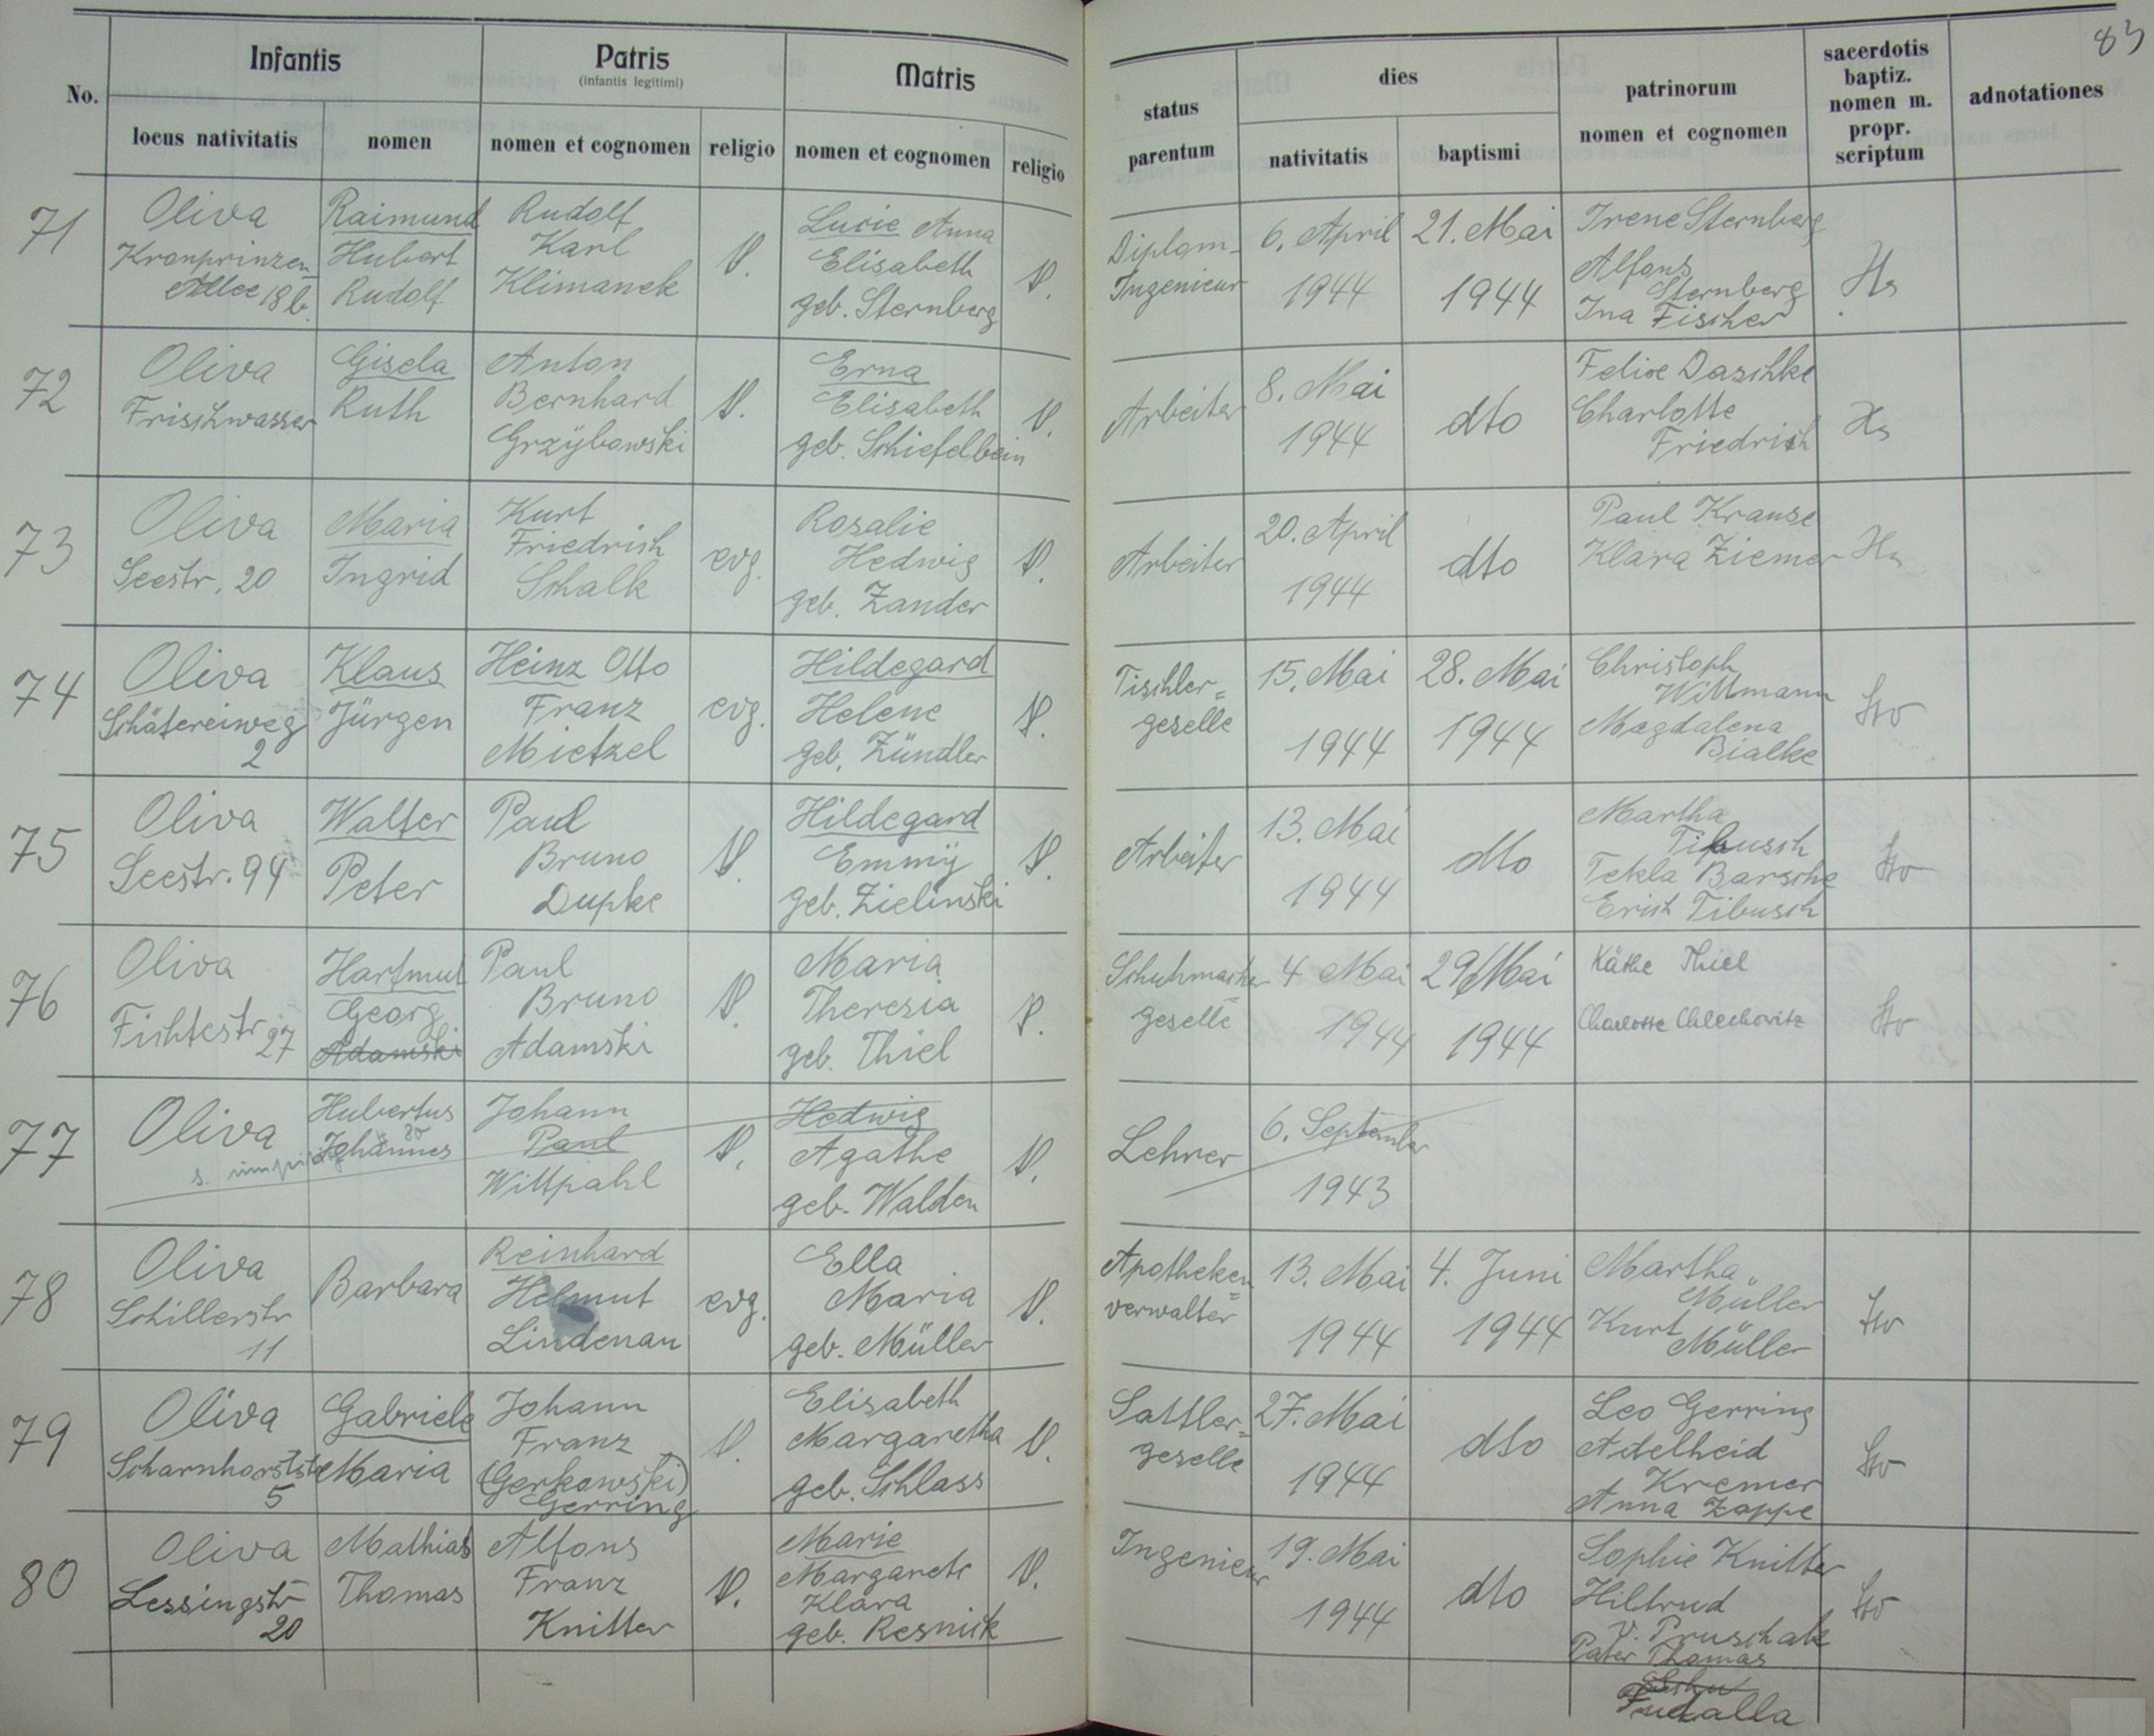 83
No.
Infantis
locus nativitatis
nomen
Patris
(infantis legitimi)
nomen et cognomen
religio
Matris
nomen et cognomen
religio
status
parentum
dies
nativitatis
baptismi
patrinorum
nomen et cognomen
sacerdotis
baptiz.
nomen m.
propr.
scriptum
adnotationes
71
Oliva
Kronprinzen
Allee 18 b.
Raimund
Hubert
Rudolf
Rudolf
Karl
Klimanek
Lucie Anna
Elisabeth
geb. Sternberg
Diplom-
Ingenieur
6. April
1944
21. Mai
1944
Irene Sternberg
Alfons
Sternberg
Ina Fischer
72
Oliva
Frischwasser
Gisela
Ruth
Anton
Bernhard
Grzybowski
Erna
Elisabeth
geb. Schiefelbein
Arbeiter
8. Mai
1944
dto
Felix Daschke
Charlotte
Friedrich
73
Oliva
Seestr. 20
Maria
Ingrid
Kurt
Friedrich
Schalk
evg.
Rosalie
Hedwig
geb. Zander
Arbeiter
20. April
1944
dto
Paul Krause
Klara Ziemer
74
Oliva
Schäfereiweg
2
Klaus
Jürgen
Heinz Otto
Franz
Mietzel
evg.
Hildegard
Helene
geb. Zündler
Tischler=
geselle
15. Mai
1944
28. Mai
1944
Christoph
Wittmann
Magdalena
Bialke
75
Oliva
Seestr. 94
Walter
Peter
Paul
Bruno
Dupke
Hildegard
Emmy
geb. Zielinski
Arbeiter
13. Mai
1944
dto
Martha
Tibusch
Tekla Barschke
Erich Tibusch
76
Oliva
Fichtestr
27
Hartmut
Georg
Adamski
Paul
Bruno
Adamski
Maria
Theresia
geb. Thiel
Schuhmacher=
geselle
4 Mai
1944
29 Mai
1944
Käthe Thiel
Charlotte Chlechowitz
77
Oliva
Hubertus
Johannes
Johann
Paul
Wittpahl
Hedwig
Agathe
geb. Walden
Lehrer
6. September
1943
78
Oliva
Schillerstr
11
Barbara
Reinhard
Helmut
Lindenau
evg.
Ella
Maria
geb. Müller
Apotheken=
verwalter
13. Mai
1944
4. Juni
1944
Martha
Müller
Kurt
Müller
79
Oliva
Scharnhorststr
5
Gabriele
Maria
Johann
Franz
(Gerkowski)
Gerring
Elisabeth
Margaretha
geb. Schlass
Sattler=
geselle
27. Mai
1944
dto
Leo Gerring
Adelheid
Kremer
Anna Zappe
80
Oliva
Lessingstr
20
Mathias
Thomas
Alfons
Franz
Knitter
Marie
Margarete
Klara
geb. Resnick
Ingenieur
19. Mai
1944
dto
Sophie Knitter
Hiltrud
v. Pruschak
Pater Thomas
Fudalla